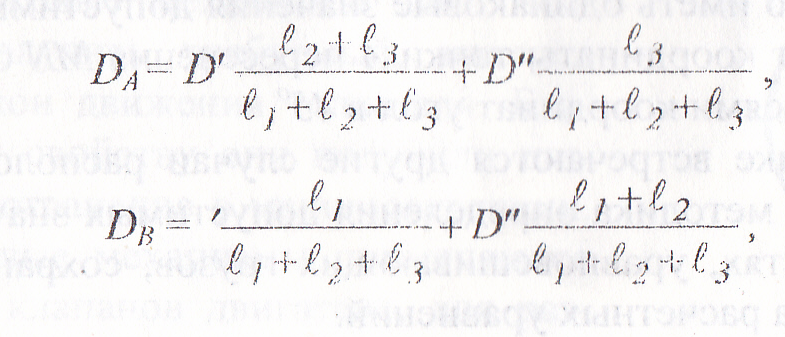 D_A = D' \frac{ℓ_2 + ℓ_3}{ℓ_1 + ℓ_2 + ℓ_3} + D'' \frac{ℓ_3}{ℓ_1 + ℓ_2 + ℓ_3},
D_B = ' \frac{ℓ_1}{ℓ_1 + ℓ_2 + ℓ_3} + D'' \frac{ℓ_1 + ℓ_2}{ℓ_1 + ℓ_2 + ℓ_3},